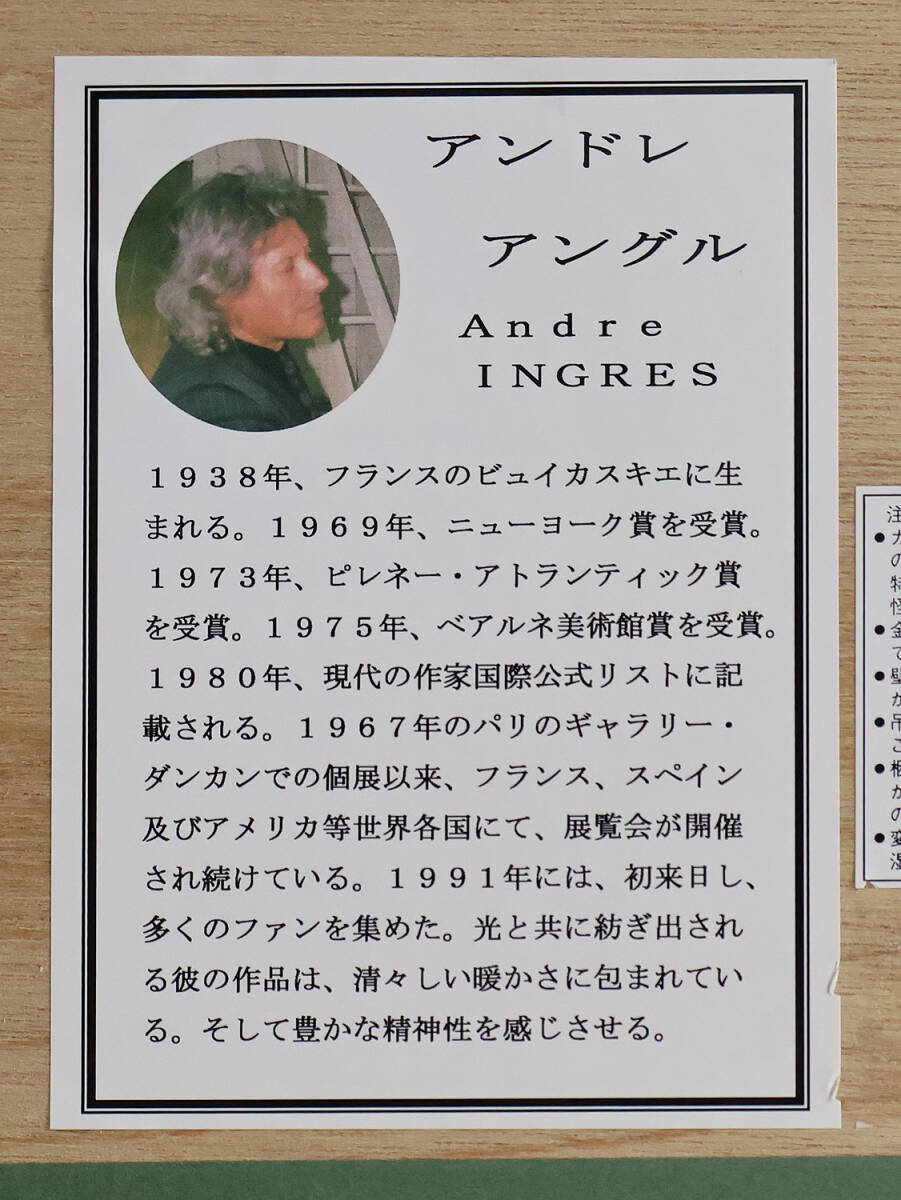 アンドレ
アングル
Andre
INGRES
1938年、フランスのビュイカスキエに生
まれる。1969年、ニューヨーク賞を受賞。
1973年、ピレネー・アトランティック賞
を受賞。1975年、ベアルネ美術館賞を受賞。
1980年、現代の作家国際公式リストに記
載される。1967年のパリのギャラリー・
ダンカンでの個展以来、フランス、スペイン
及びアメリカ等世界各国にて、展覧会が開催
され続けている。1991年には、初来日し、
多くのファンを集めた。光と共に紡ぎ出され
る彼の作品は、清々しい暖かさに包まれてい
る。そして豊かな精神性を感じさせる。
注
●カ
の
特
怪
●金
て
●壁
か
●吊
こ
●梱
か
の
●変
湿